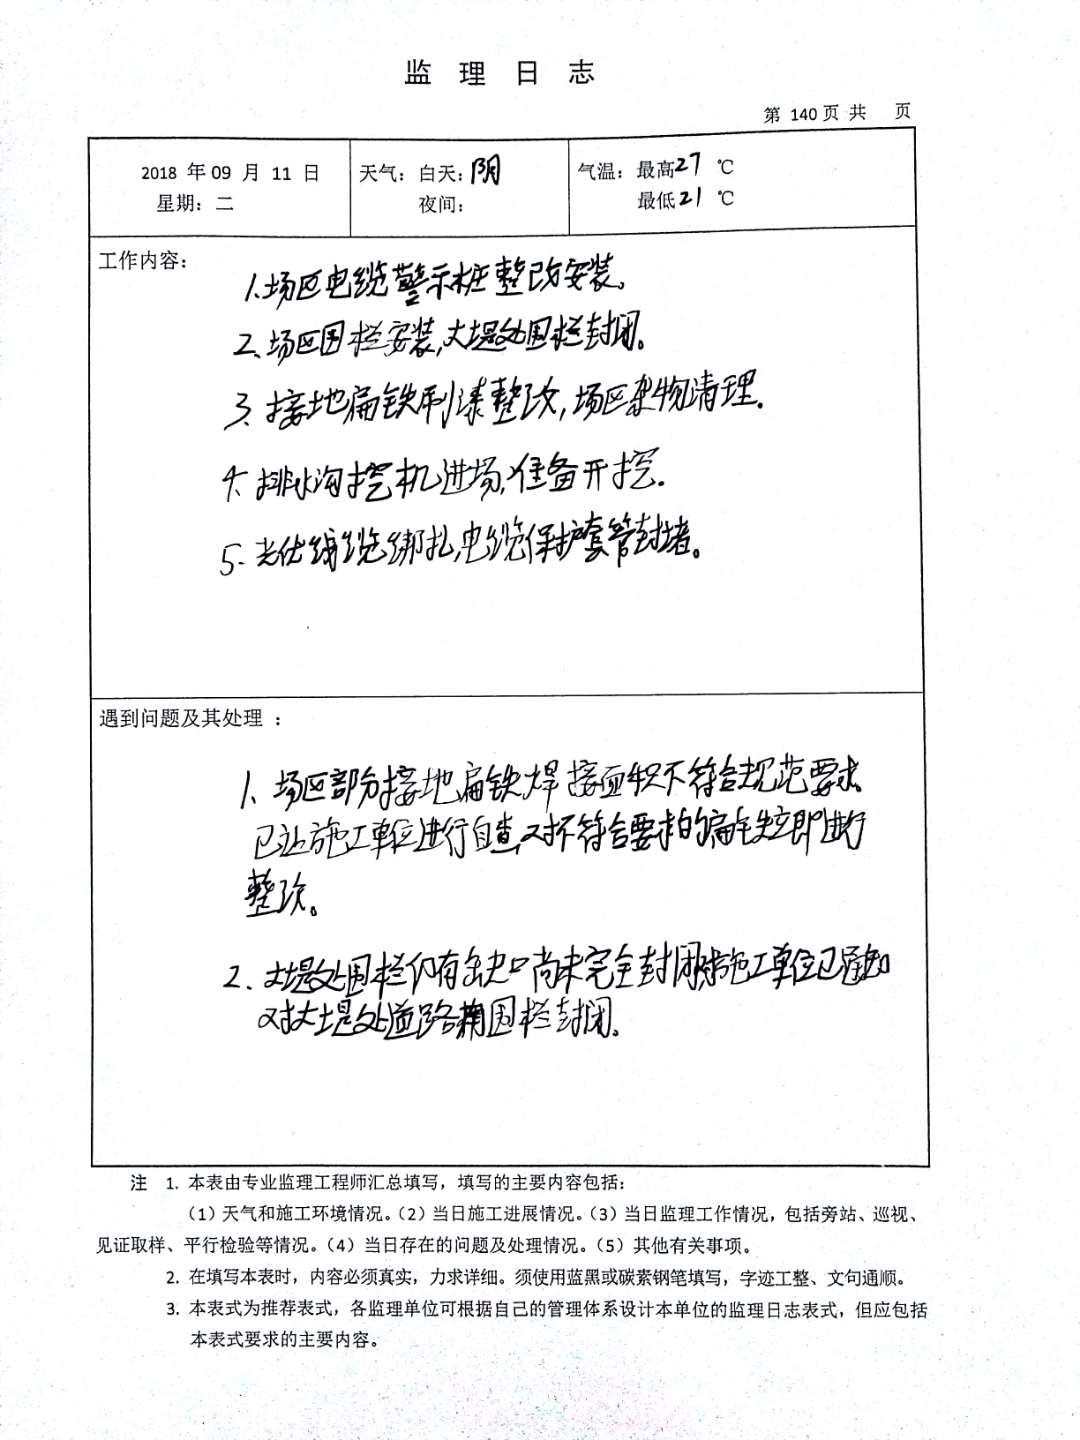 监理日志
第 140 页 共 页
2018 年 09 月 11 日
星期：二
天气：白天：阴
夜间：
气温：最高27 ℃
最低21 ℃
工作内容：
1.场区电缆警示桩整改安装。
2、场区围栏安装,大堤处围栏封闭。
3、接地扁铁刷漆整改,场区杂物清理.
4、排水沟挖机进场,准备开挖.
5、光伏线缆绑扎,电缆保护套管封堵。
遇到问题及其处理 ：
1、场区部分接地扁铁焊接面积不符合规范要求
已让施工单位进行自查,对不符合要求的扁铁立即进行
整改。
2、大堤处围栏仍有缺口尚未完全封闭 施工单位已通知
对大堤处道路 围栏封闭.
注 1. 本表由专业监理工程师汇总填写，填写的主要内容包括：
（1）天气和施工环境情况。（2）当日施工进展情况。（3）当日监理工作情况，包括旁站、巡视、
见证取样、平行检验等情况。（4）当日存在的问题及处理情况。（5）其他有关事项。
2. 在填写本表时，内容必须真实，力求详细。须使用蓝黑或碳素钢笔填写，字迹工整、文句通顺。
3. 本表式为推荐表式，各监理单位可根据自己的管理体系设计本单位的监理日志表式，但应包括
本表式要求的主要内容。